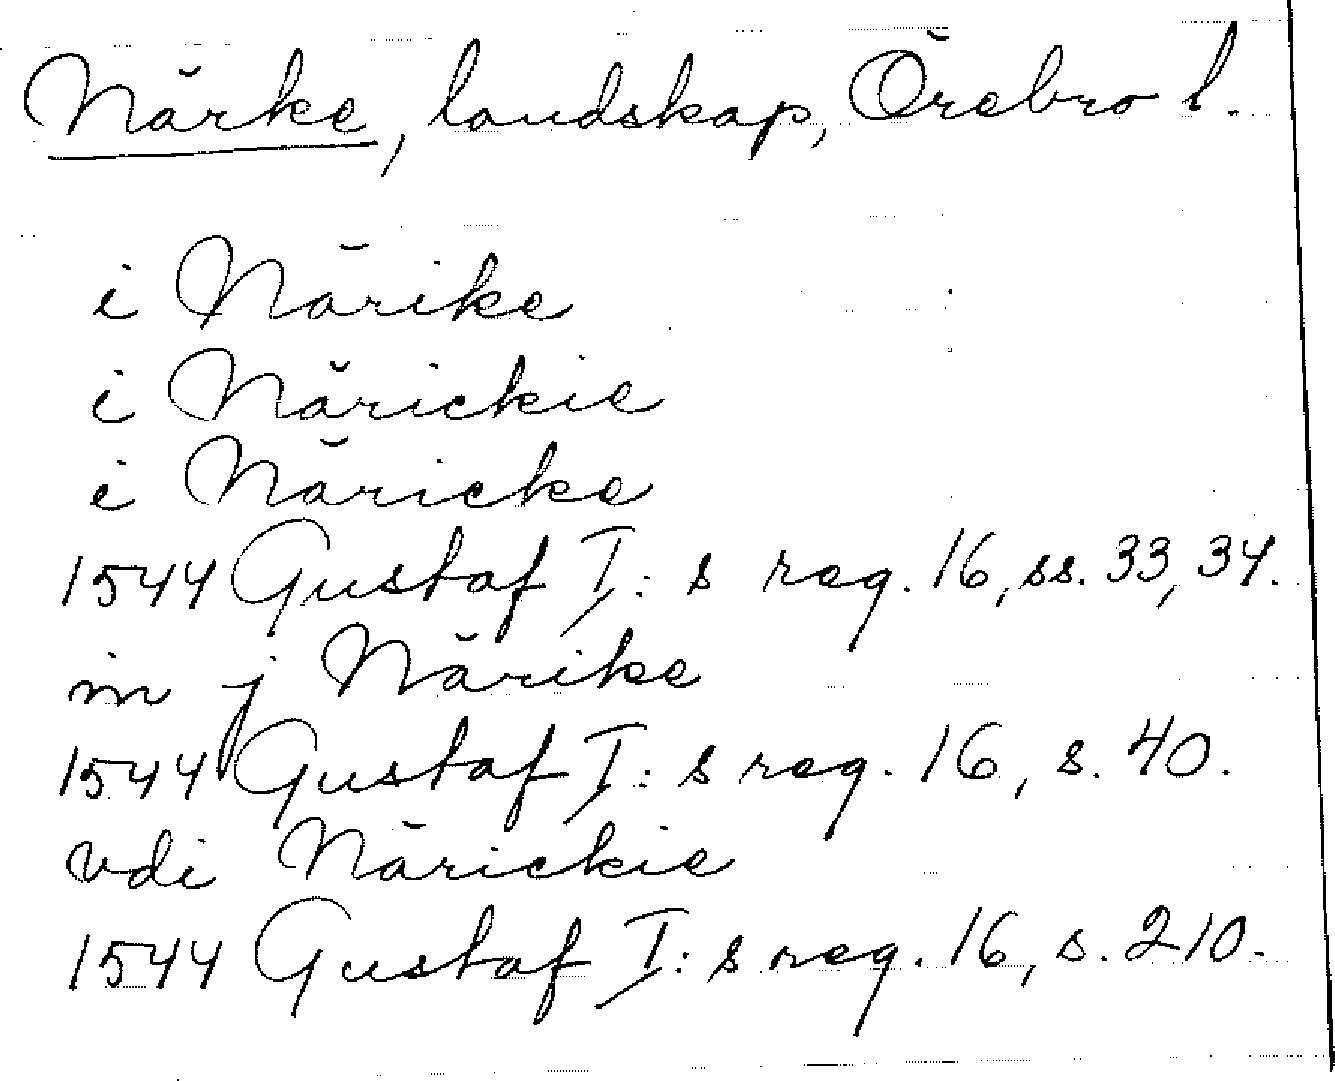 Närke, landskap, Örebro l.
i Närike
i Närickie
i Näricke
1544 Gustaf I:s reg. 16, ss. 33, 34.
in j Närike
1544 Gustaf I:s reg. 16, s. 40.
vdi Närickie
1544 Gustaf I:s reg. 16, s. 210.